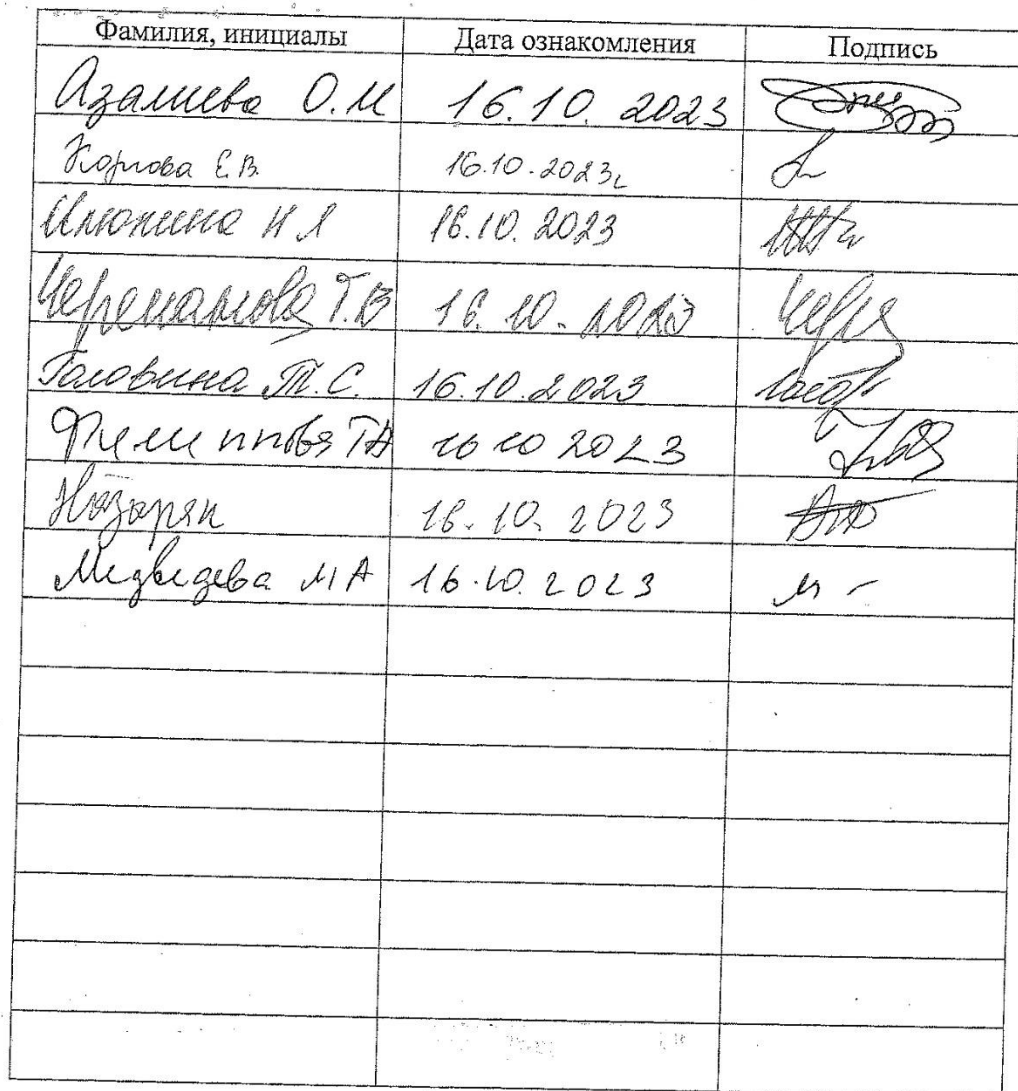 Фамилия, инициалы Дата ознакомления Подпись
Азалиева О.М 16.10.2023
Е.В. 16.10.2023г
Илюхина Н Л 16.10.2023
Т.В 16.10.2023
Головина Т.С. 16.10.2023
Филиппова ТА 16 10 2023
Назарян 16.10.2023
Медведева МА 16.10.2023